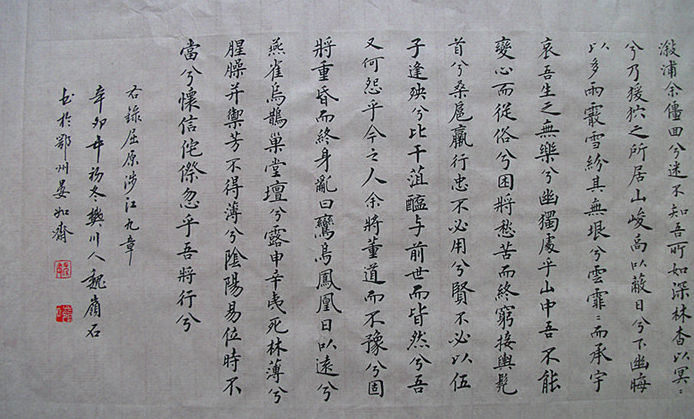 溆浦余儃回兮迷不知吾所如深林杳以冥〻
兮乃猨狖之所居山峻高以蔽日兮下幽晦
以多雨霰雪紛其無垠兮雲霏〻而承宇
哀吾生之無樂兮幽獨處乎山中吾不能
變心而從俗兮固將愁苦而終窮接輿髡
首兮桑扈臝行忠不必用兮賢不必以伍
子逢殃兮比干菹醢与前世而皆然兮吾
又何怨乎今之人余將董道而不豫兮固
將重昏而終身亂曰鸞鳥鳳凰日以遠兮
燕雀烏鵲巢堂壇兮露申辛夷死林薄兮
腥臊并禦芳不得薄兮陰陽易位時不
當兮懷信侘傺忽乎吾將行兮
右錄屈原涉江九章
辛卯年初冬樊川人魏嶺石
书於鄂州晏如齋